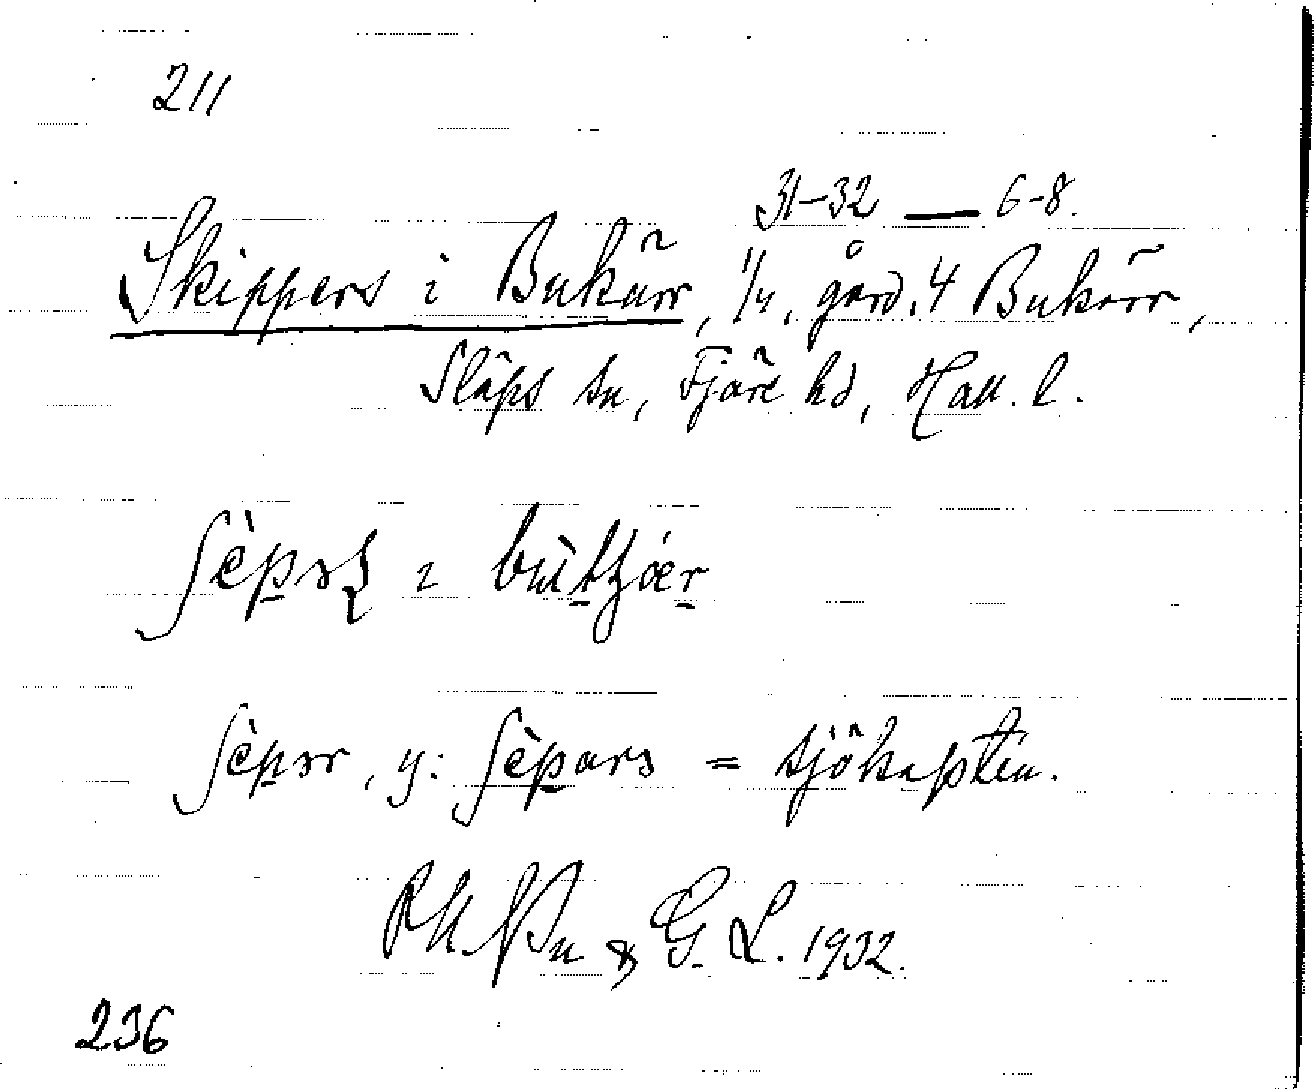 211
31-32 — 6-8.
Skippers i Bukärr, 1/4, gård. 4 Bukärr,
Släps sn, Fjäre hd, Hall. l.
ʃèpər, y: ʃèpars = sjökapten.
& G. L. 1932.
236